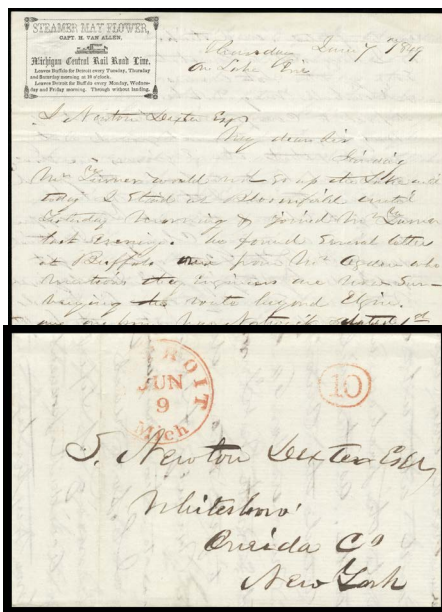 STEAMER MAY FLOWER,
CAPT. H. VAN ALLEN,
Michigan Central Rail Road Line.
Leaves Buffalo for Detroit every Tuesday, Thursday
and Saturday morning at 10 o'clock.
Leaves Detroit for Buffalo every Monday, Wednes-
day and Friday morning. Through without landing.
Thursday June 7th 1849
on Lake Erie
S. Newton Dexter Esq
My dear Sir
Finding
Mr Turner would not go up the Lake until
today I staid at Bloomfield until
yesterday morning & joined Mr Turner
last evening. We found several letters
at Buffalo one from Mr Ogden who
mentions the Engineers are now Sur-
veying the route beyond Elgin.
DETROIT
JUN
9
Mich
10
S. Newton Dexter Esq
Whitesboro'
Oneida Co
New York